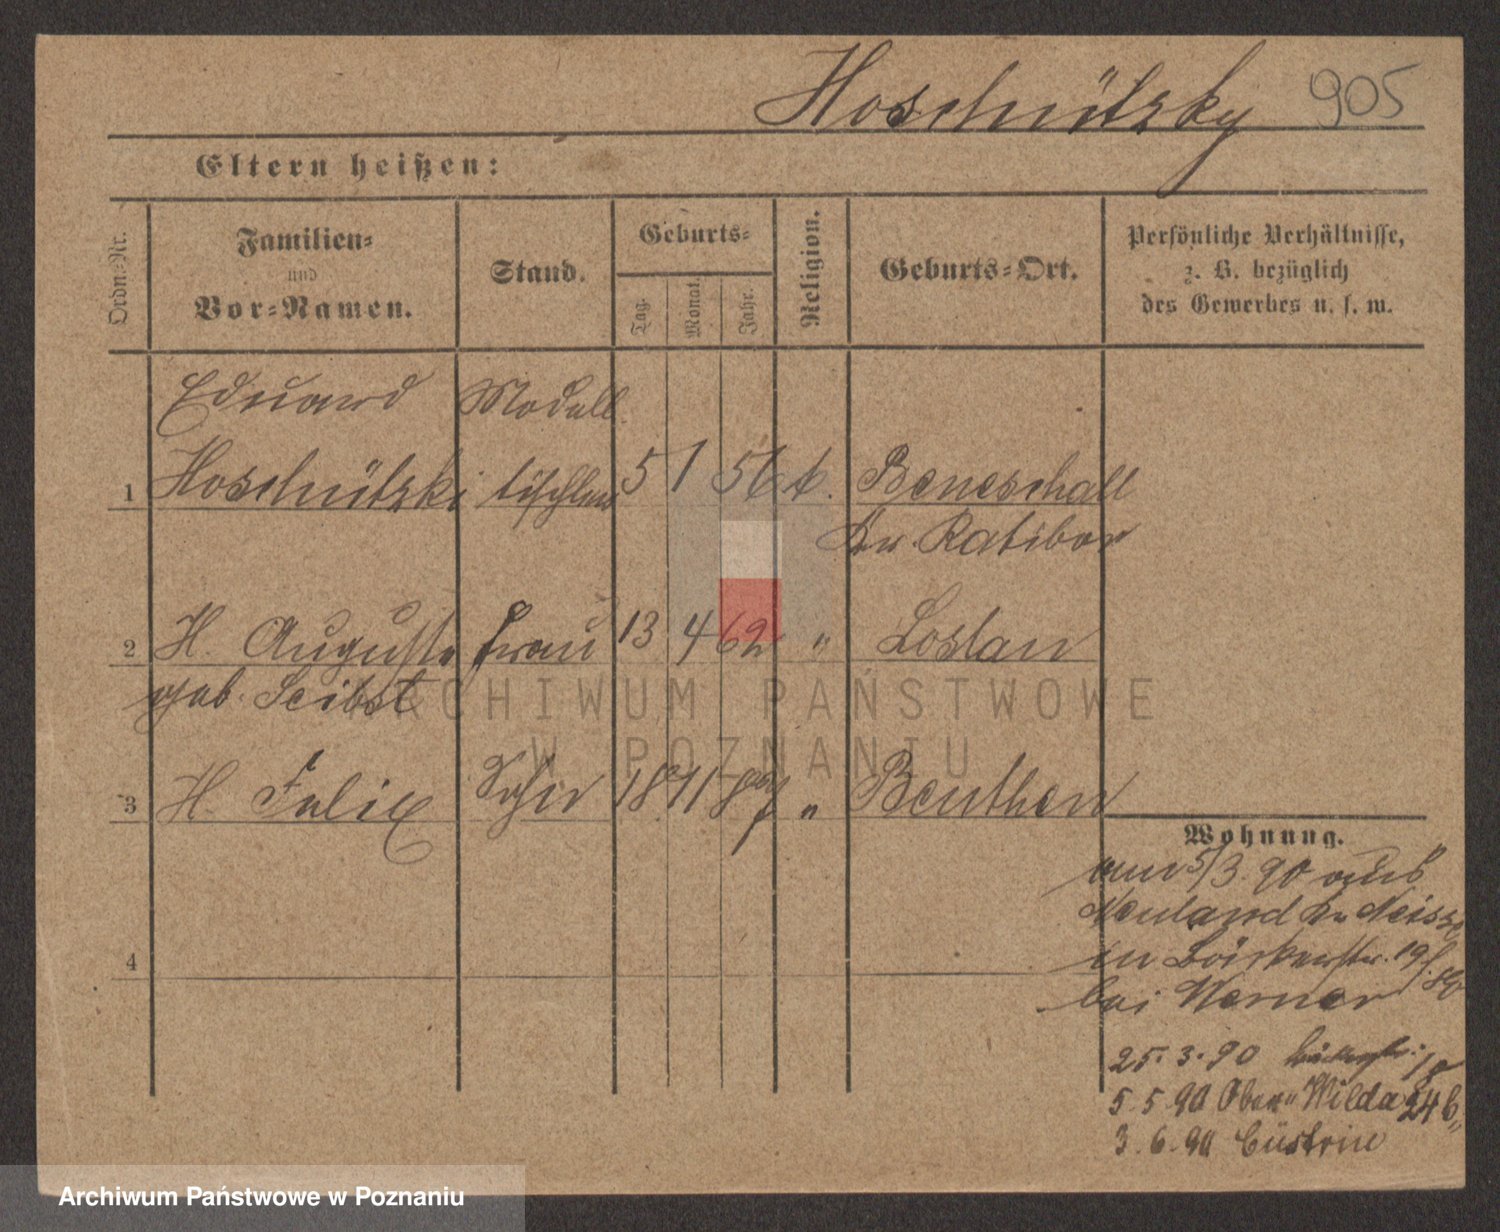 Hoschützky 905
Eltern heißen:
Ordn=Nr.
Familien=
und
Vor=Namen.
Stand.
Geburts=
Tag.
Monat.
Jahr.
Religion.
Geburts=Ort.
Persönliche Verhältnisse,
z. B. bezüglich
des Gewerbes u. s. w.
Eduard Modell
1 Hoschützki tischler 5 1 56 k. Beneschall
Kr. Ratibor
2 H. Auguste Frau 13 4 62 " Loslau
geb. Seibst
3 H. Felix Sohn 18 11 87 " Beuthen
4
Wohnung.
am 5/3. 90 aus
Neuland Kr. Neisse
in Bäckerstr. 19
bei Werner
25. 3. 90
5. 5. 90 Ober Wilda 24 b
3. 6. 90 Cüstrin
ARCHIWUM PAŃSTWOWE
W POZNANIU
Archiwum Państwowe w Poznaniu